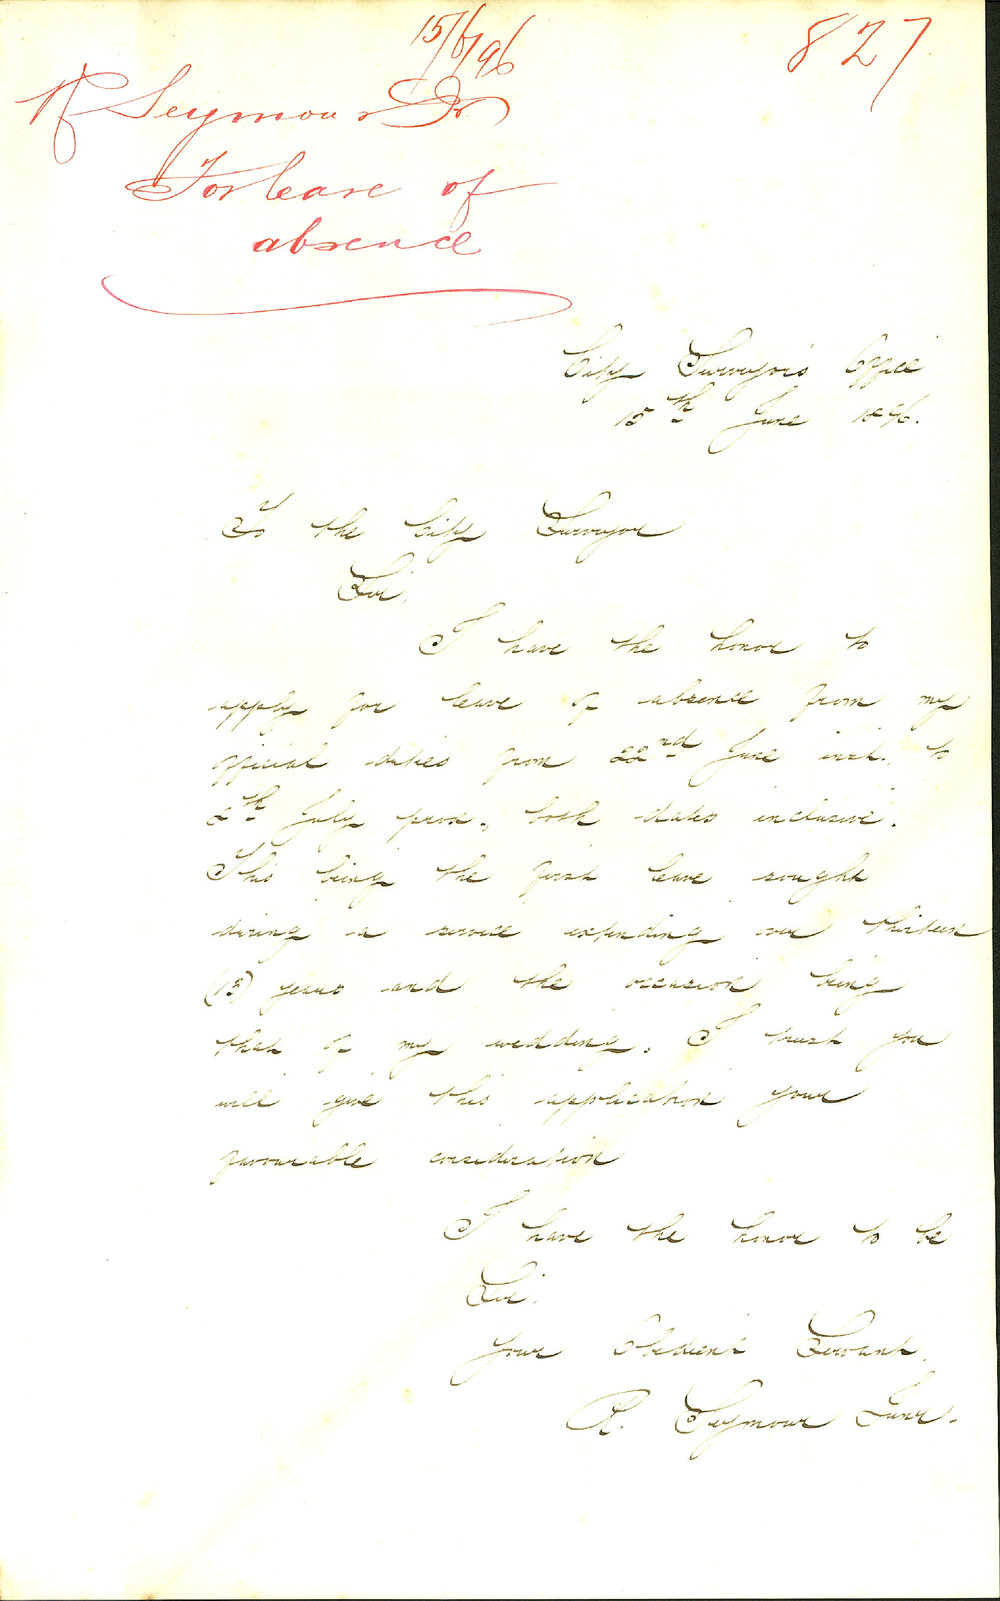 15/6/96
827
R Seymour Jr.
For leave of
absence
City Surveyor's Office
15th June 1896.
To the City Surveyor
Sir,
I have the honor to
apply for leave of absence from my
official duties from 22nd June inst. to
2th July prox., both dates inclusive.
This being the first leave sought
during a service extending over thirteen
(13) years and the occasion being
that of my wedding. I trust you
will give this application your
favourable consideration
I have the honor to be
Sir,
Your Obedient Servant,
R. Seymour Junr.